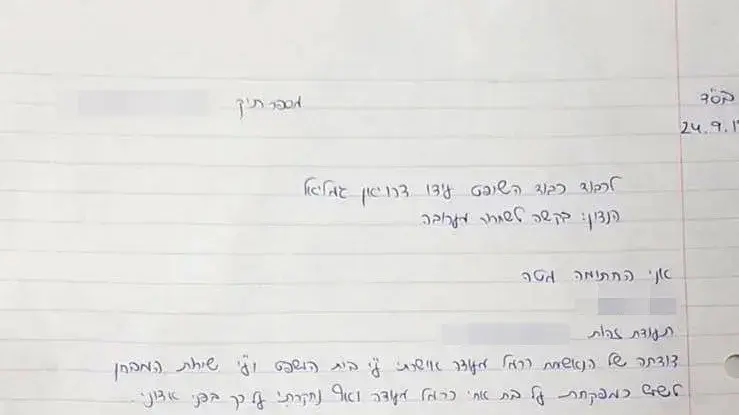 בס"ד
24.9.1
מספר תיק
לכבוד כבוד השופט עידו דרויאן גמליאל
הנדון: בקשה לשחרור מערובה
אני החתומה מטה
תעודת זהות
דודתה של הנאשמת כרמל מעודה אושרתי ע"י בית המשפט וע"י שירות המבחן
לשמש כמפקחת על בת אחי כרמל מעודה ואף נחקרתי על כך בפני אדוני.